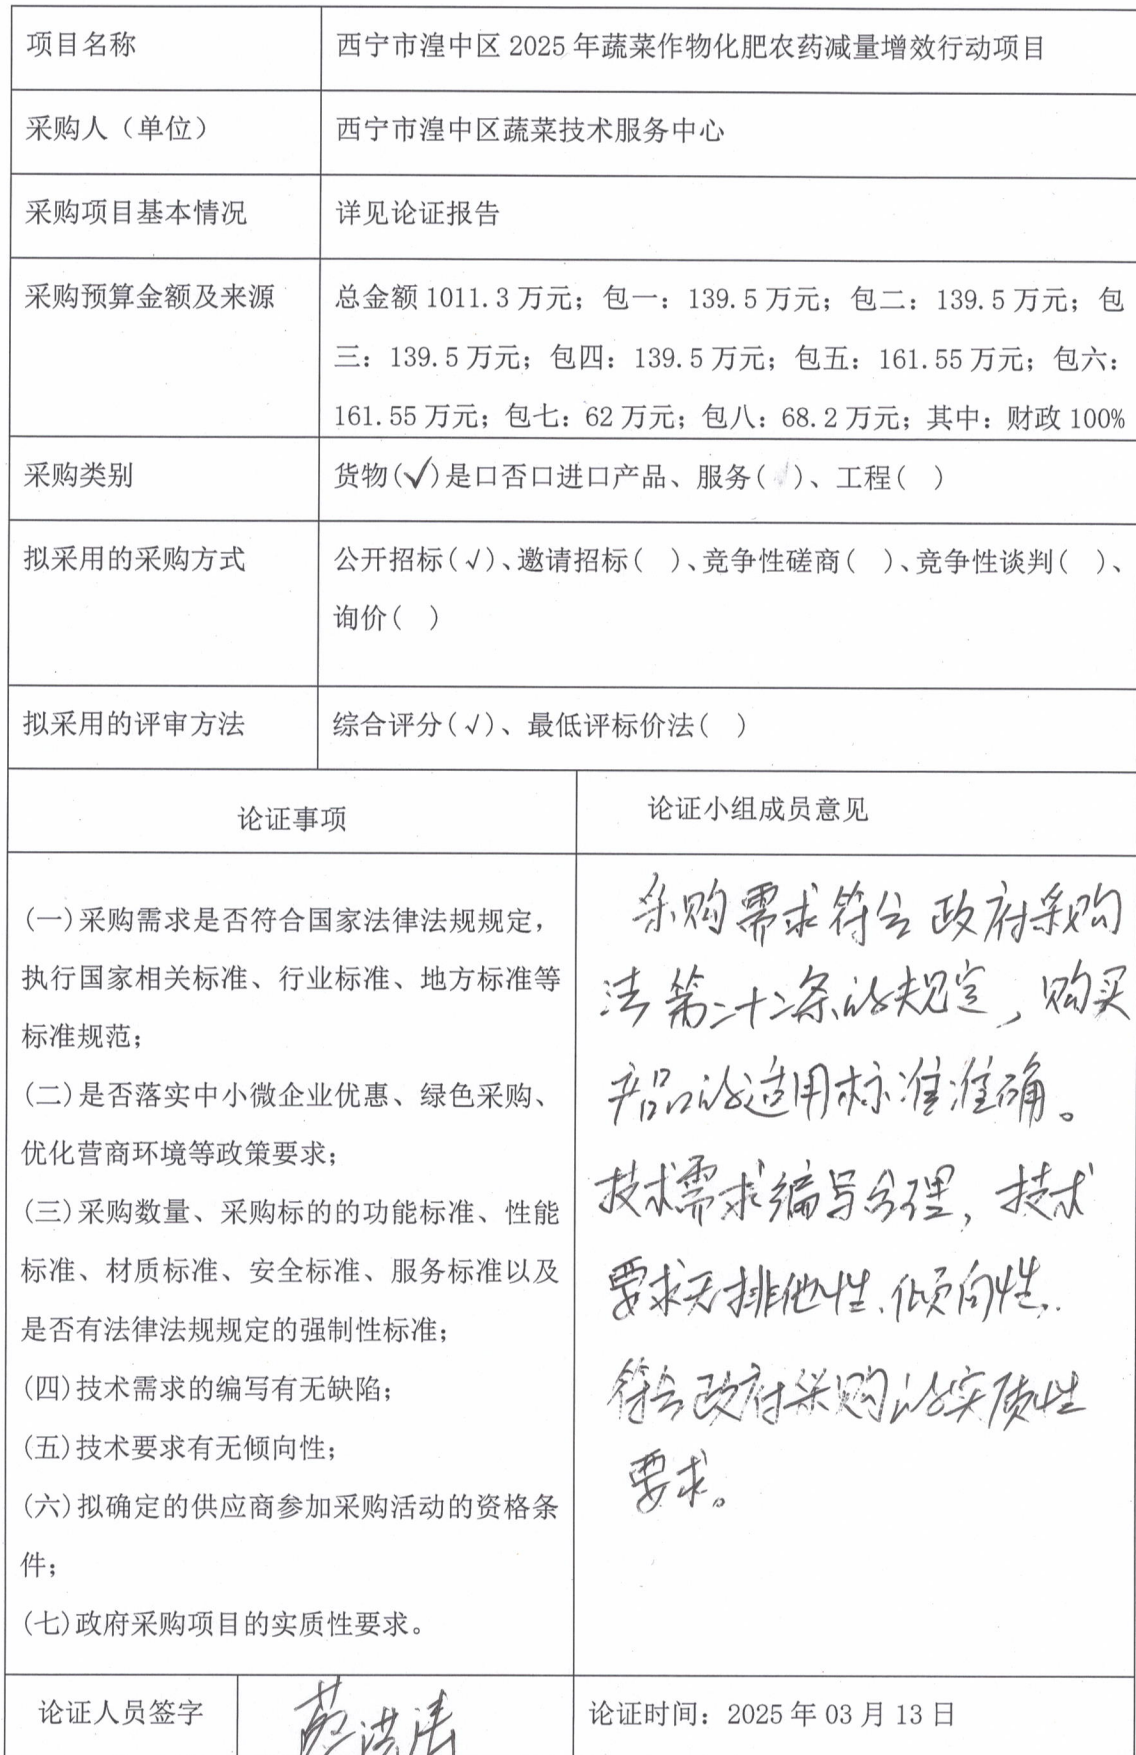 项目名称 西宁市湟中区 2025 年蔬菜作物化肥农药减量增效行动项目
采购人（单位） 西宁市湟中区蔬菜技术服务中心
采购项目基本情况 详见论证报告
采购预算金额及来源 总金额 1011.3 万元；包一：139.5 万元；包二：139.5 万元；包
三：139.5 万元；包四：139.5 万元；包五：161.55 万元；包六：
161.55 万元；包七：62 万元；包八：68.2 万元；其中：财政 100%
采购类别 货物(√)是口否口进口产品、服务( )、工程( )
拟采用的采购方式 公开招标(√)、邀请招标( )、竞争性磋商( )、竞争性谈判( )、
询价( )
拟采用的评审方法 综合评分(√)、最低评标价法( )
论证事项
(一)采购需求是否符合国家法律法规规定，
执行国家相关标准、行业标准、地方标准等
标准规范；
(二)是否落实中小微企业优惠、绿色采购、
优化营商环境等政策要求；
(三)采购数量、采购标的的功能标准、性能
标准、材质标准、安全标准、服务标准以及
是否有法律法规规定的强制性标准；
(四)技术需求的编写有无缺陷；
(五)技术要求有无倾向性；
(六)拟确定的供应商参加采购活动的资格条
件；
(七)政府采购项目的实质性要求。
论证小组成员意见
采购需求符合政府采购
法第二十二条的规定，购买
产品的适用标准准确。
技术需求编写合理，技术
要求无排他性、倾向性.
符合政府采购的实质性
要求。
论证人员签字
论证时间：2025 年 03 月 13 日